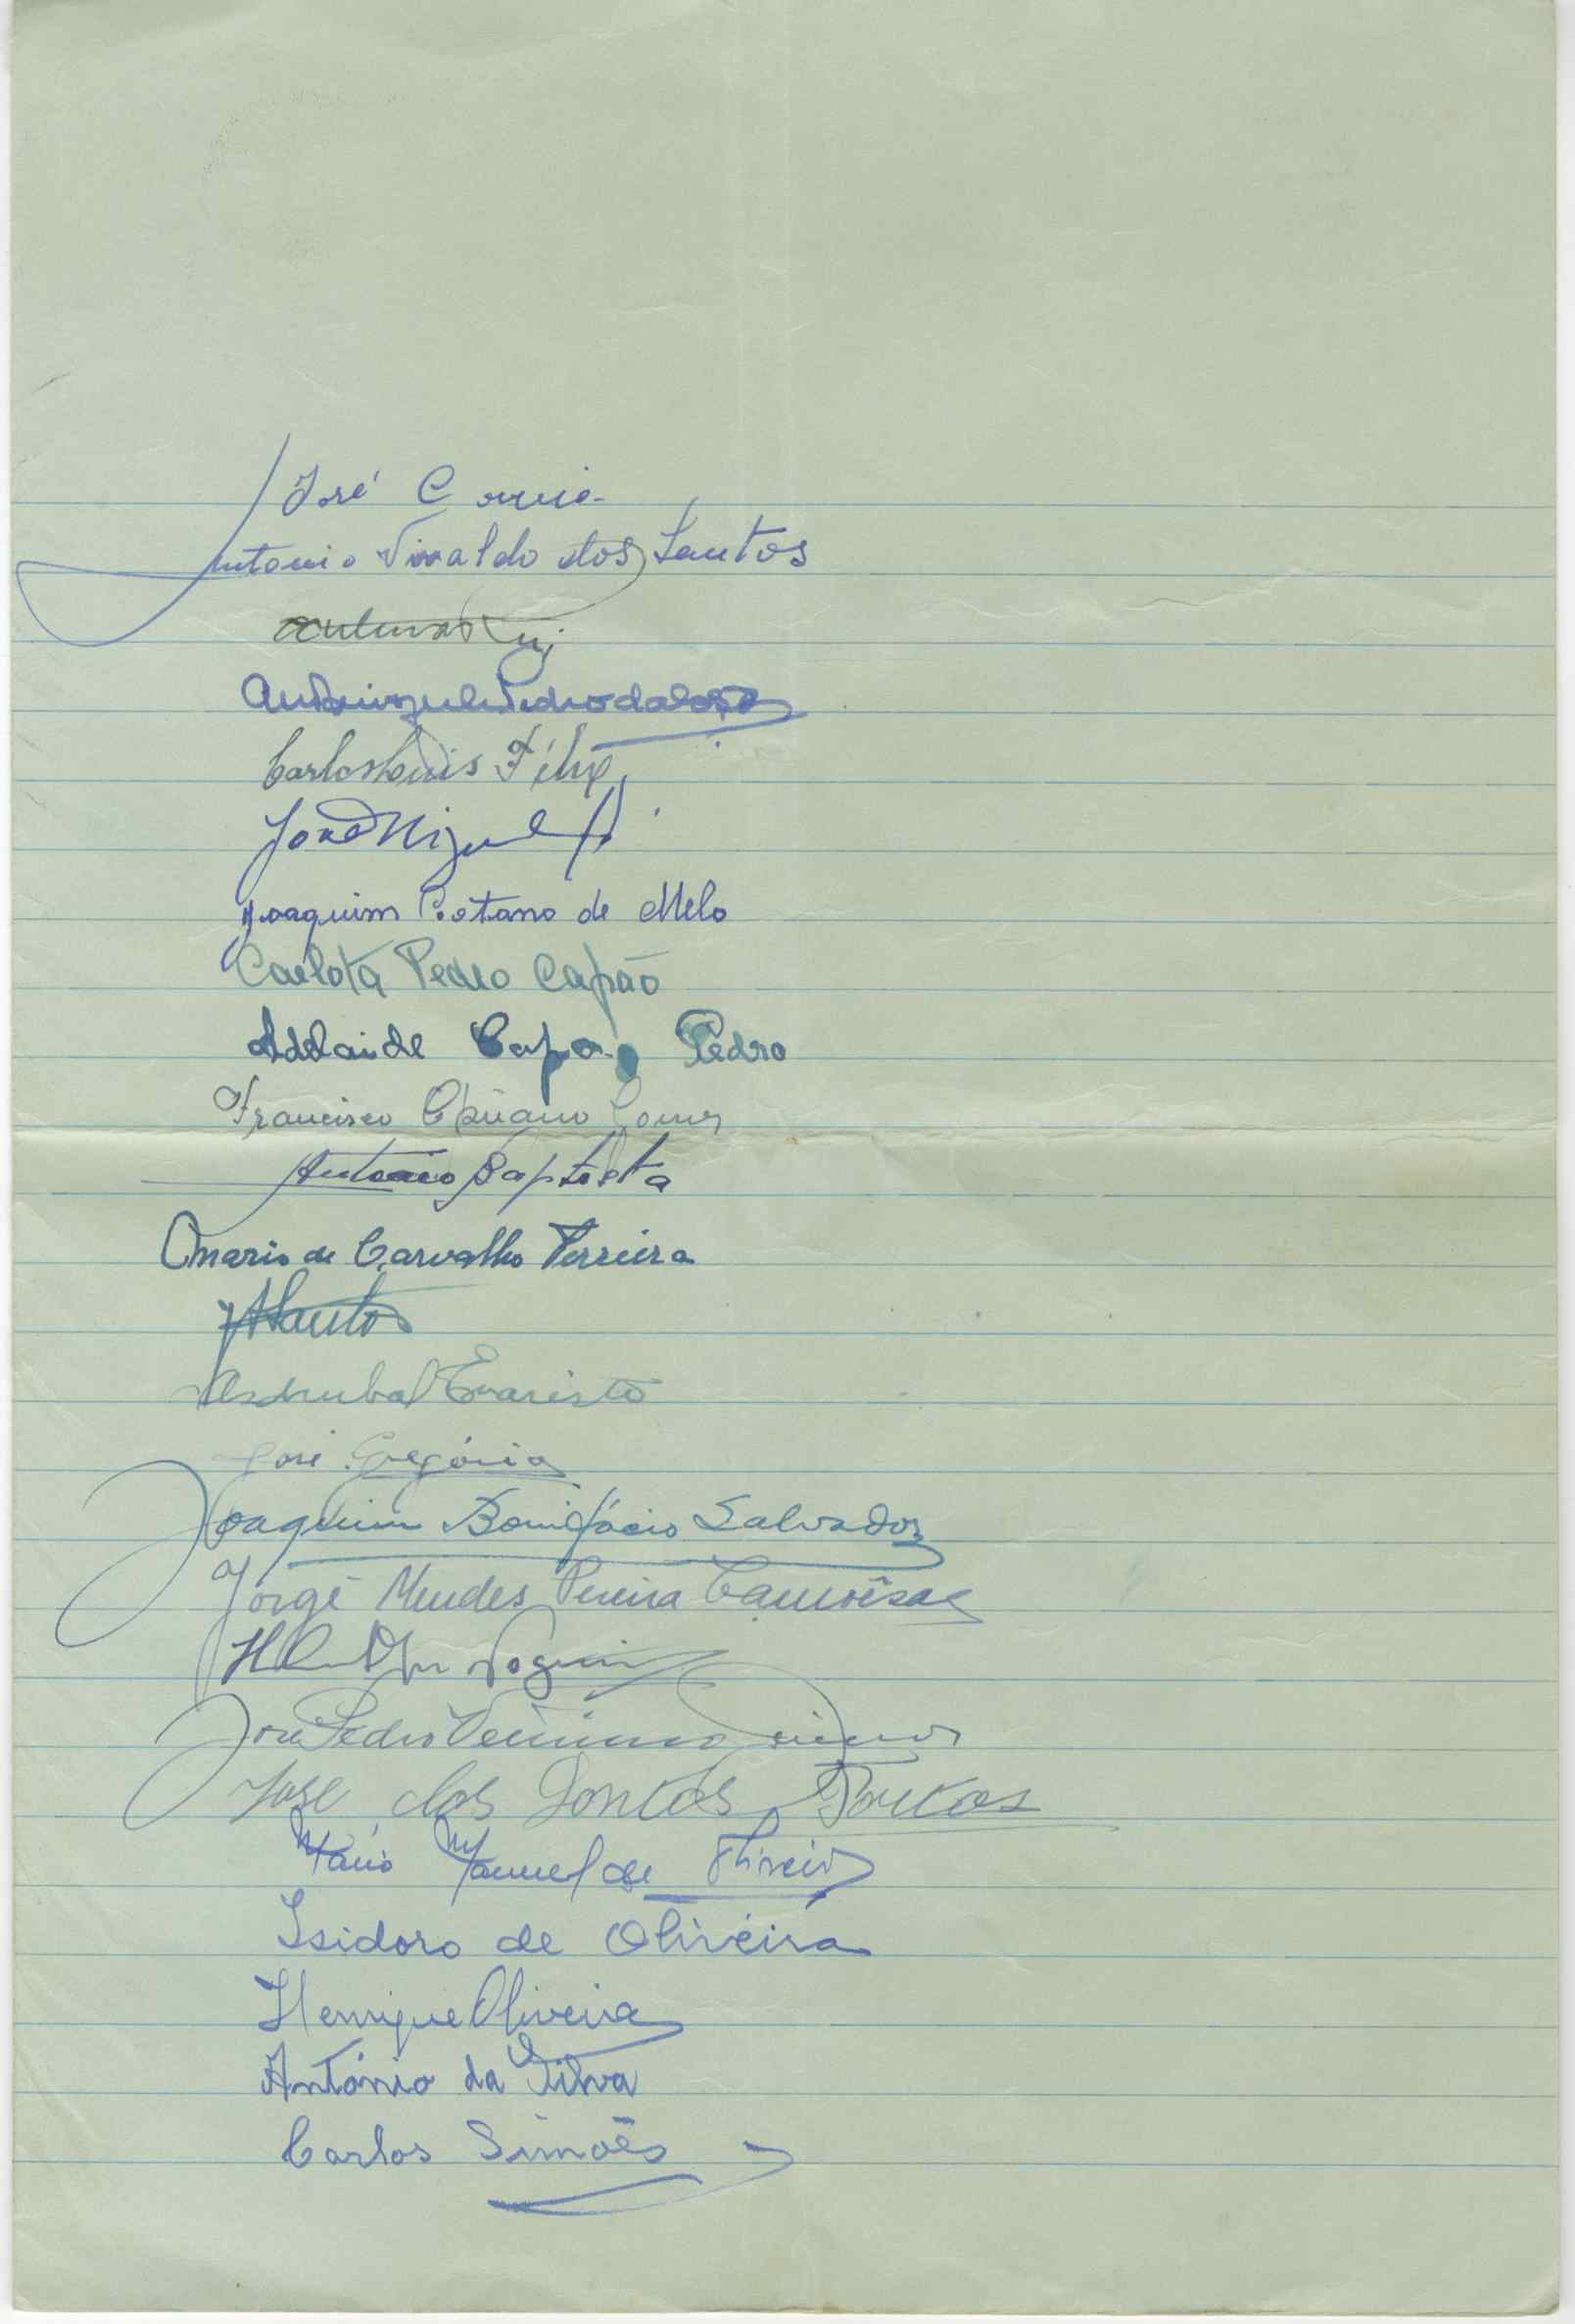 José Correia
Antonio Vivaldo dos Santos
Pedro da
Carlos Luis Félix
José Miguel
Joaquim Caetano de Melo
Carlota Pedro Capão
Adelaide Capão Pedro
Francisco Gomes
António Baptista
Mario de Carvalho Ferreira
Santos
Asdrubal Evaristo
José Gregório
Joaquim Bonifácio Salvador
Jorge Mendes Pereira Camoêsas
José Pedro
José dos Santos
Mário Manuel de Oliveira
Isidoro de Oliveira
Henrique Oliveira
António da Silva
Carlos Simões